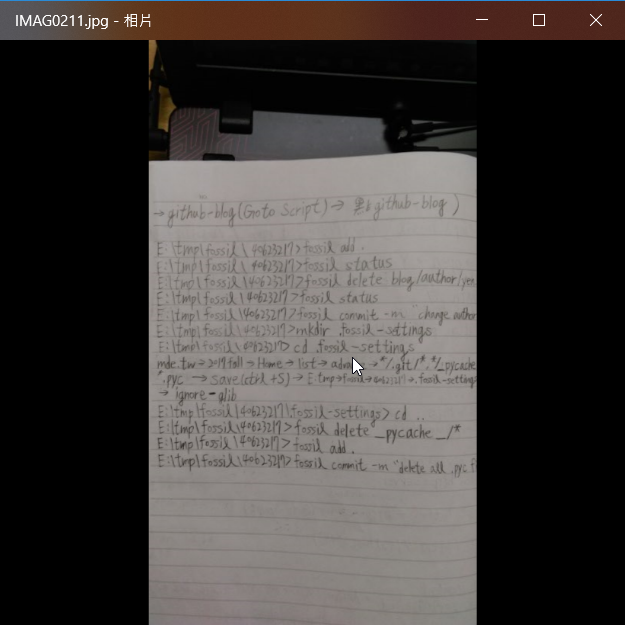 IMAG0211.jpg - 相片
→ github-blog(Goto Script) → 點 github-blog )
E:\tmp\fossil\40623217>fossil add .
E:\tmp\fossil\40623217>fossil status
E:\tmp\fossil\40623217>fossil delete blog/author/yen
E:\tmp\fossil\40623217>fossil status
E:\tmp\fossil\40623217>fossil commit -m "change author
E:\tmp\fossil\40623217>mkdir .fossil-settings
E:\tmp\fossil\40623217> cd .fossil-settings
mde.tw→2019fall→Home→list→ →*/.git/*.*/_pycache
*.pyc → save(ctrl+S) → E:tmp→fossil→40623217→.fossil-settings
→ ignore-glib
E:\tmp\fossil\40623217\.fossil-settings> cd ..
E:\tmp\fossil\40623217> fossil delete _pycache_/*
E:\tmp\fossil\40623217> fossil add .
E:\tmp\fossil\40623217> fossil commit -m "delete all .pyc f